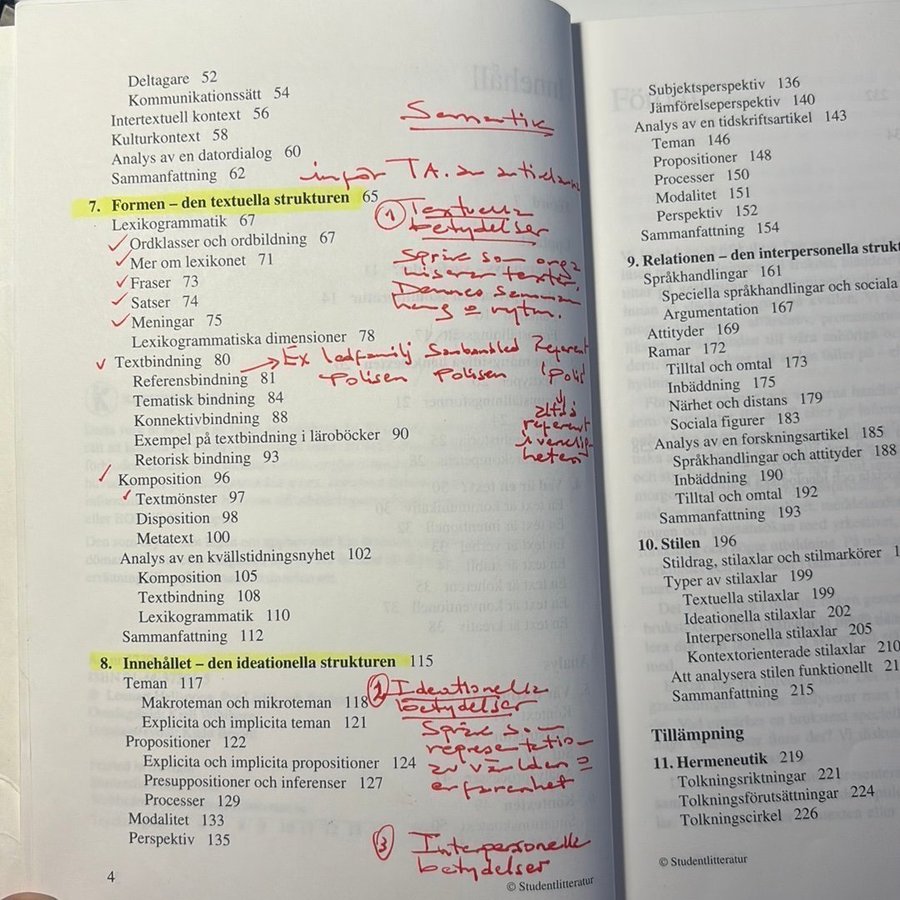 Deltagare 52
Kommunikationssätt 54
Intertextuell kontext 56
Kulturkontext 58
Analys av en datordialog 60
Sammanfattning 62
7. Formen – den textuella strukturen 65
Lexikogrammatik 67
Ordklasser och ordbildning 67
Mer om lexikonet 71
Fraser 73
Satser 74
Meningar 75
Lexikogrammatiska dimensioner 78
Textbindning 80
Referensbindning 81
Tematisk bindning 84
Konnektivbindning 88
Exempel på textbindning i läroböcker 90
Retorisk bindning 93
Komposition 96
Textmönster 97
Disposition 98
Metatext 100
Analys av en kvällstidningsnyhet 102
Komposition 105
Textbindning 108
Lexikogrammatik 110
Sammanfattning 112
8. Innehållet – den ideationella strukturen 115
Teman 117
Makroteman och mikroteman 118
Explicita och implicita teman 121
Propositioner 122
Explicita och implicita propositioner 124
Presuppositioner och inferenser 127
Processer 129
Modalitet 133
Perspektiv 135
4
© Studentlitteratur
Semantik
inför TA. av
① Textuella
betydelser
Språk som orga
niserar texter.
Dennes samman
hang = rytm.
Ex ledfamilj Samband Referent
Polisen Polisen
altså
referent
i verklig-
heten
② Ideationella
betydelser
Språk som
representation
av världen =
erfarenhet
③ Interpersonella
betydelser
Subjektsperspektiv 136
Jämförelseperspektiv 140
Analys av en tidskriftsartikel 143
Teman 146
Propositioner 148
Processer 150
Modalitet 151
Perspektiv 152
Sammanfattning 154
9. Relationen – den interpersonella strukt
Språkhandlingar 161
Speciella språkhandlingar och sociala
Argumentation 167
Attityder 169
Ramar 172
Tilltal och omtal 173
Inbäddning 175
Närhet och distans 179
Sociala figurer 183
Analys av en forskningsartikel 185
Språkhandlingar och attityder 188
Inbäddning 190
Tilltal och omtal 192
Sammanfattning 193
10. Stilen 196
Stildrag, stilaxlar och stilmarkörer 1
Typer av stilaxlar 199
Textuella stilaxlar 199
Ideationella stilaxlar 202
Interpersonella stilaxlar 205
Kontextorienterade stilaxlar 210
Att analysera stilen funktionellt 21
Sammanfattning 215
Tillämpning
11. Hermeneutik 219
Tolkningsriktningar 221
Tolkningsförutsättningar 224
Tolkningscirkel 226
© Studentlitteratur